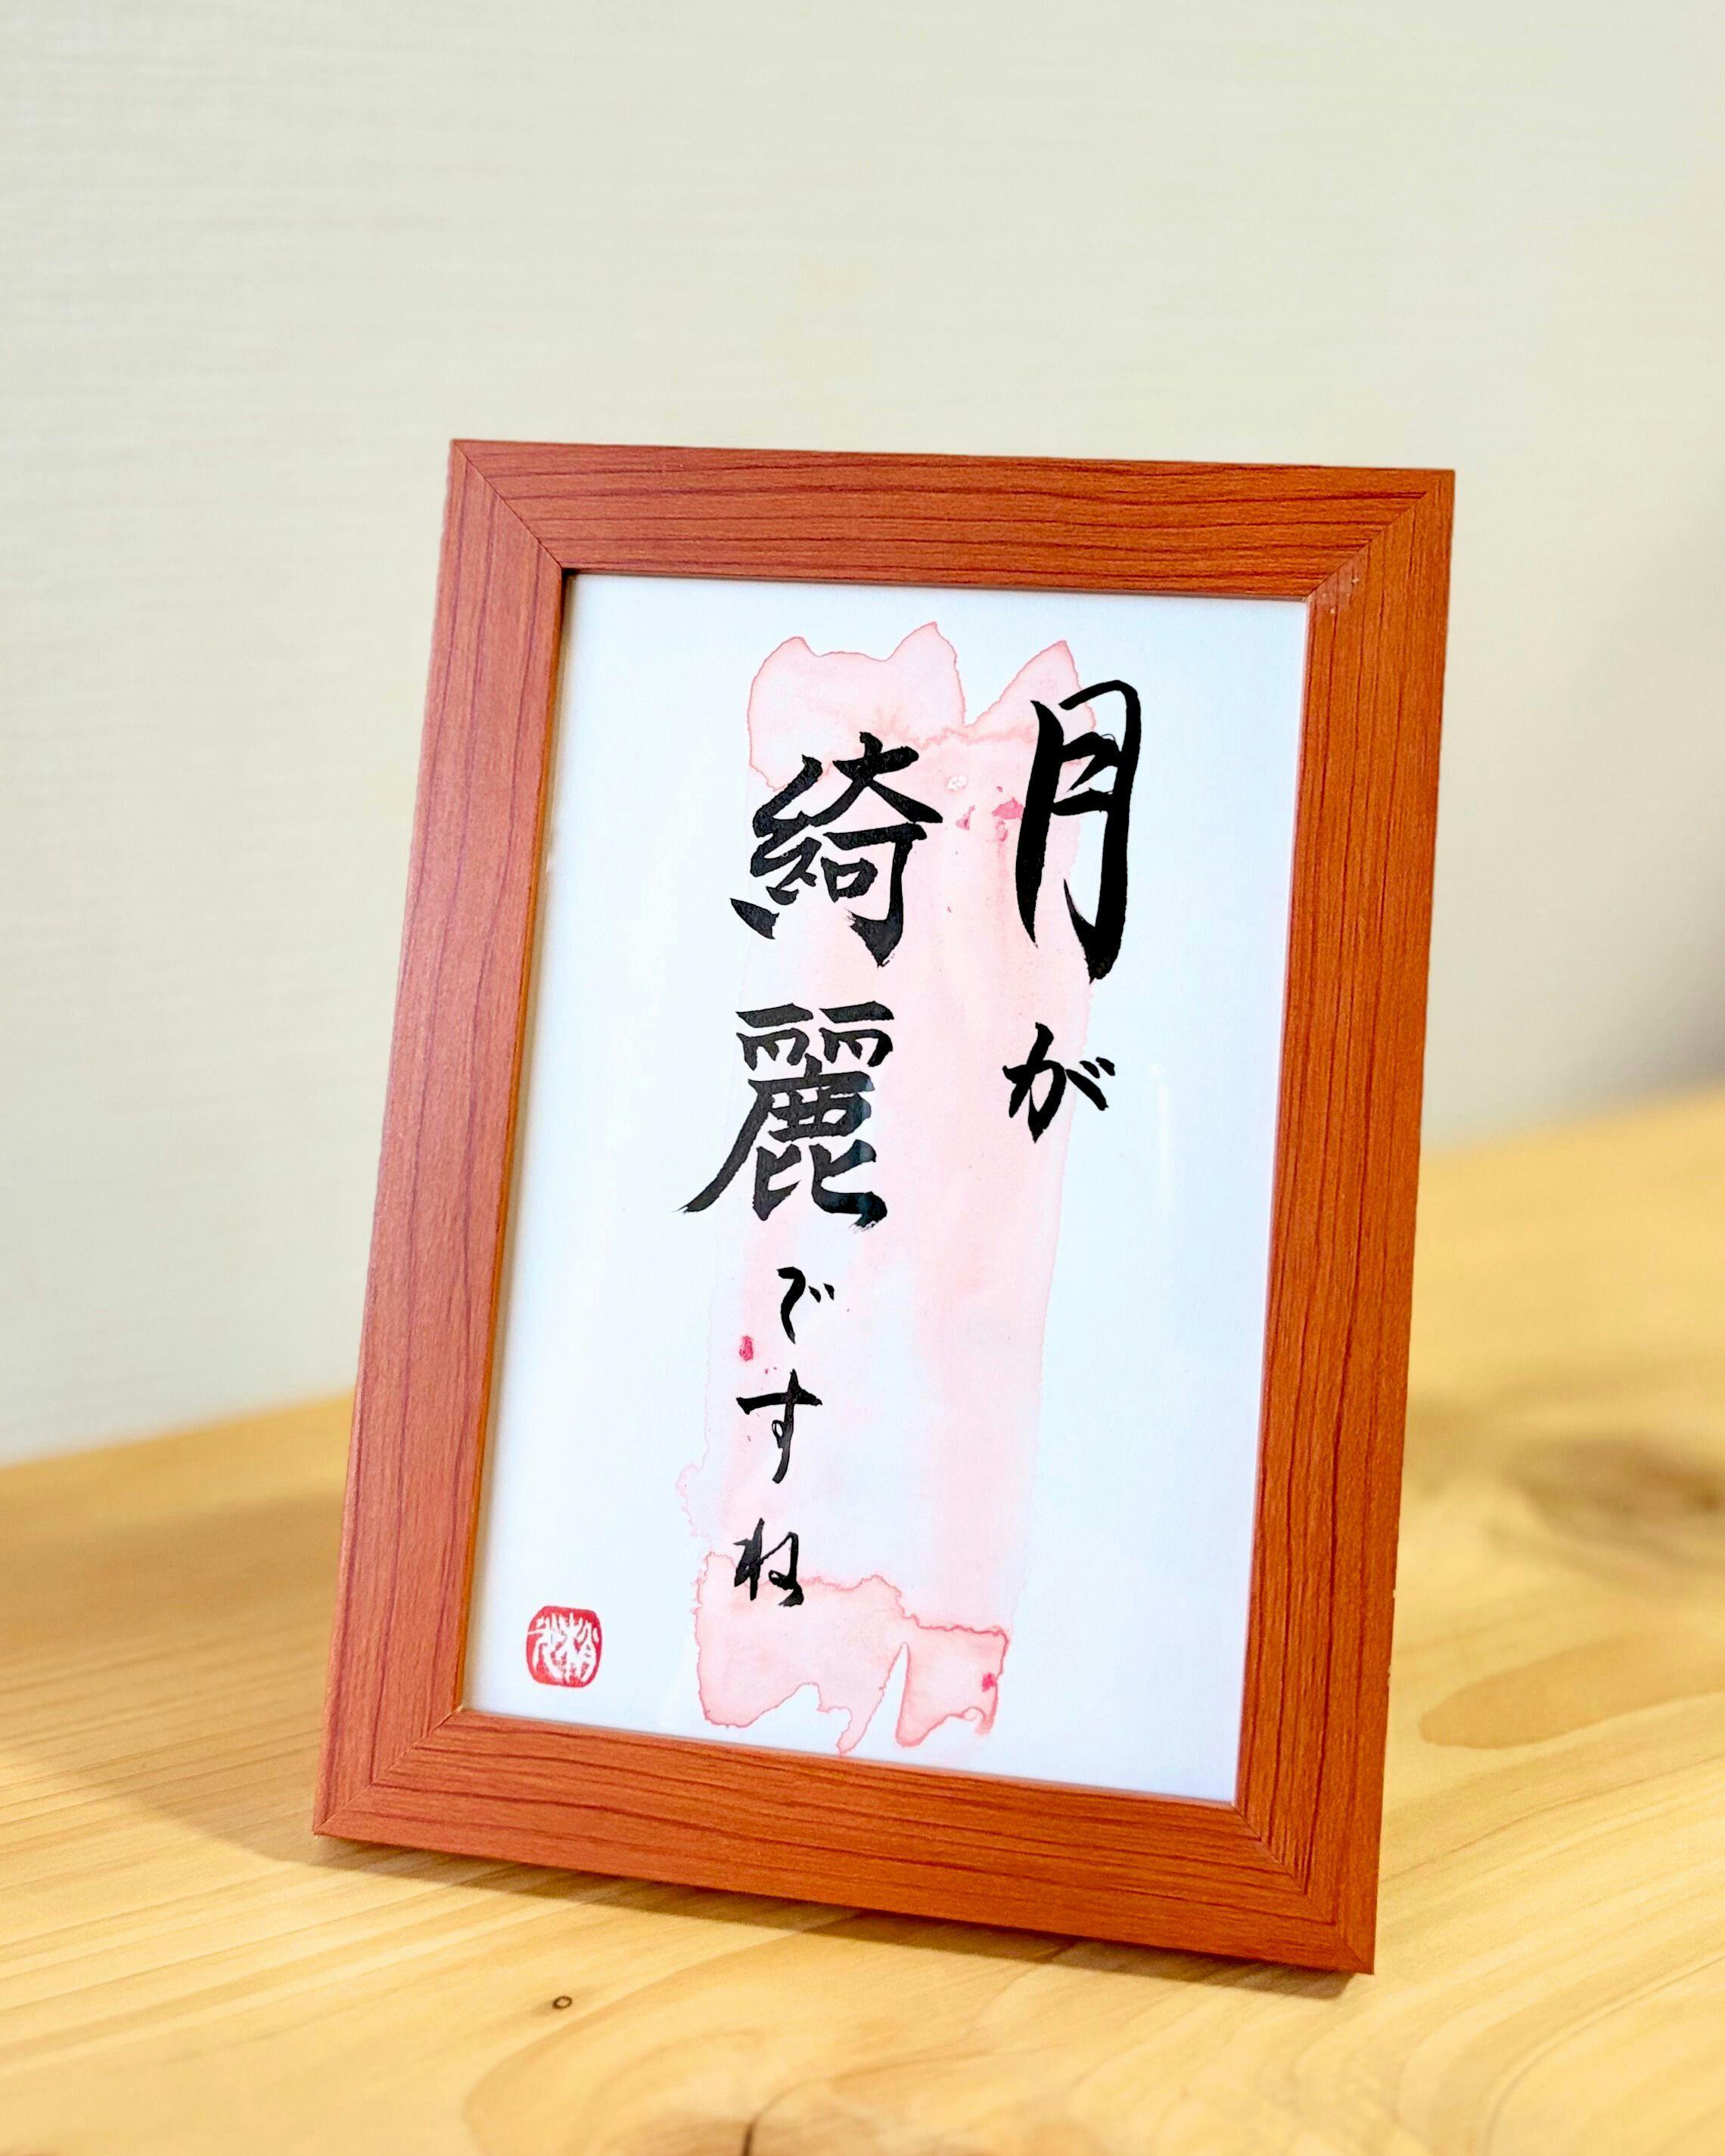 月が
綺麗ですね